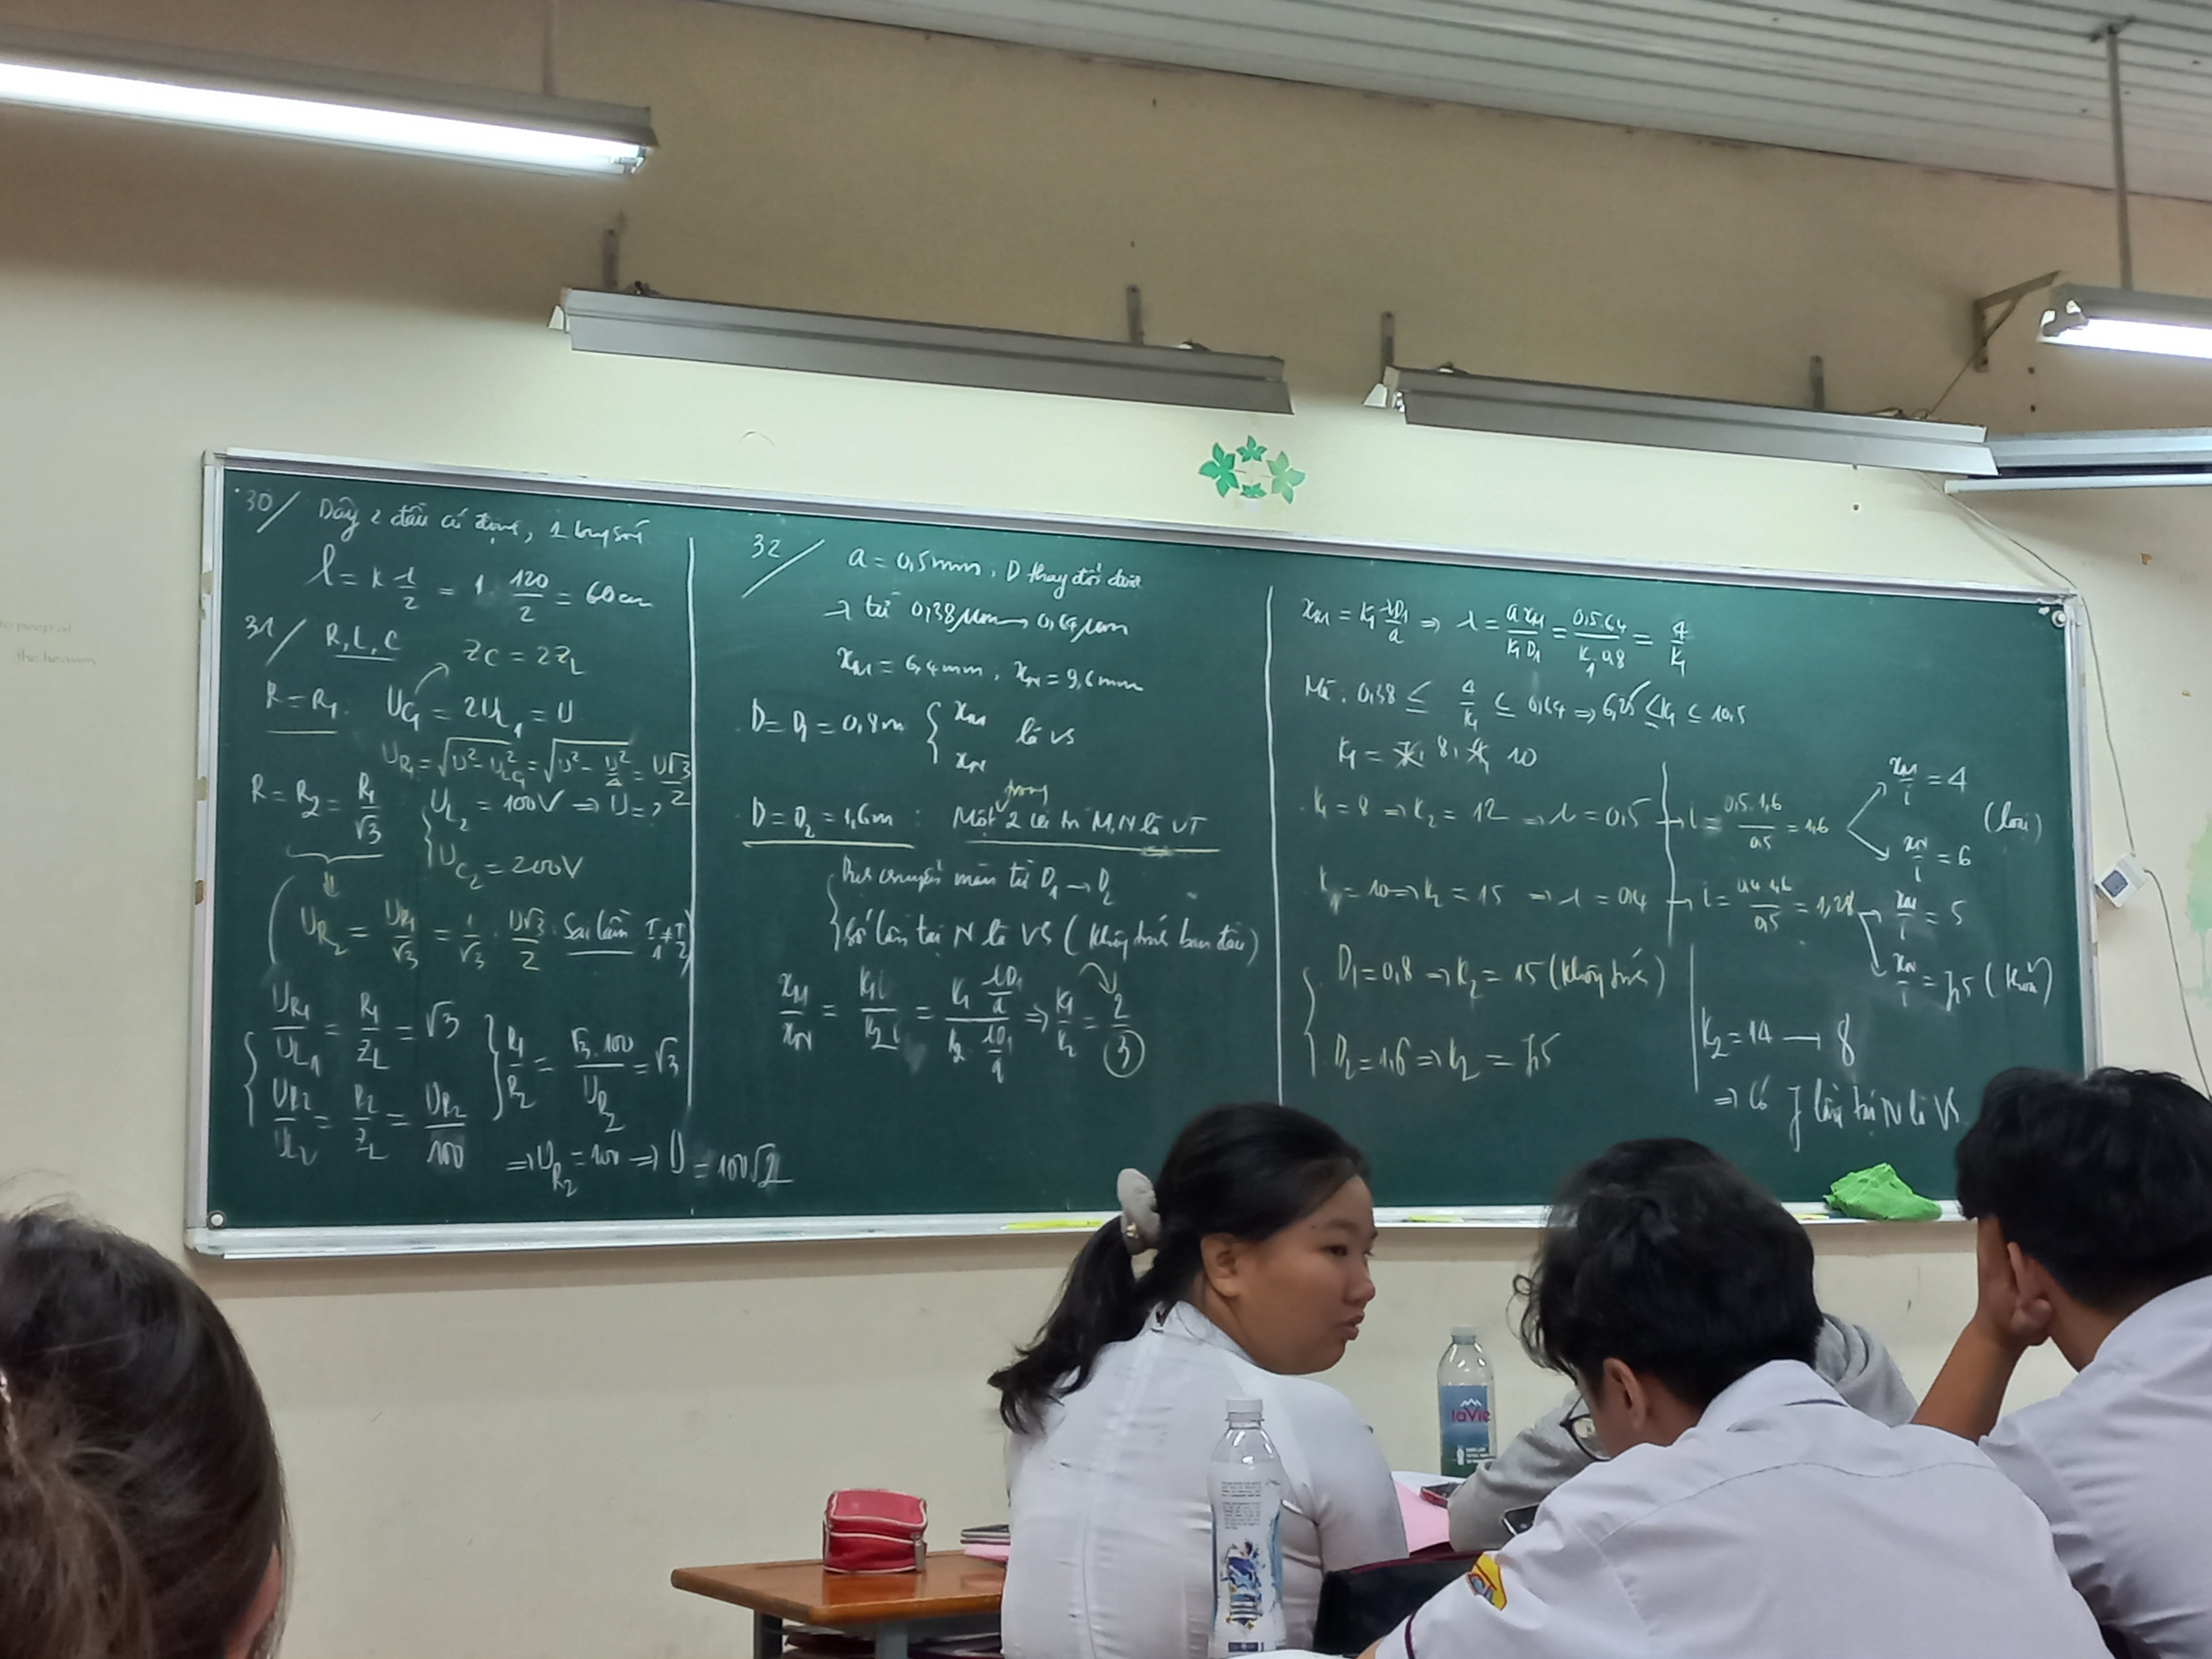 30/ Dây 2 đầu cố định, 1 bụng sóng
l = k λ/2 = 1. 120/2 = 60cm
31/ R, L, C Z_C = 2Z_L
R = R₁. U_C₁ = 2U_L₁ = U
U_R₁ = √(U² - U²_C₁) = √(U² - U²/4) = U√3/2
R = R₂ = R₁/√3 { U_L₂ = 100V ⇒ U = ?
U_C₂ = 200V
U_R₂ = U_R₁/√3 = 1/√3 . U√3/2 Sai lầm I₁ ≠ I₂
{ U_R₁/U_L₁ = R₁/Z_L = √3
U_R₂/U_L₂ = R₂/Z_L = U_R₂/100
} R₁/R₂ = √3.100/U_R₂ = √3
⇒ U_R₂ = 100 ⇒ U = 100√2
32/ a = 0,5mm; D thay đổi được
λ từ 0,38μm → 0,64μm
x_M = 6,4mm, x_N = 9,6mm
D = D₁ = 0,8m { x_M x_N là VS
D = D₂ = 1,6m : Một trong 2 vị trí M, N là VT
{ Dịch chuyển màn từ D₁ → D₂
số lần tại N là VS (không tính ban đầu)
x_M/x_N = k₁i/k₂i = k₁ λD₁/a / k₂ λD₁/a ⇒ k₁/k₂ = 2/3
x_M = k₁ λD₁/a ⇒ λ = a x_M/k₁D₁ = 0,5.6,4/k₁.0,8 = 4/k₁
Mà: 0,38 ≤ 4/k₁ ≤ 0,64 ⇒ 6,25 ≤ k₁ ≤ 10,5
k₁ = 7, 8, 9, 10
k₁ = 8 ⇒ k₂ = 12 ⇒ λ = 0,5 → i = 0,5.1,6/0,5 = 1,6 x_M/i = 4
x_N/i = 6 (loại)
k₁ = 10 ⇒ k₂ = 15 ⇒ λ = 0,4 → i = 0,4.1,6/0,5 = 1,28 x_M/i = 5
x_N/i = 7,5 (thỏa)
{ D₁ = 0,8 ⇒ k₂ = 15 (không tính)
D₂ = 1,6 ⇒ k₂ = 7,5
k₂ = 14 → 8
⇒ Có 7 lần tại N là VS
laVie